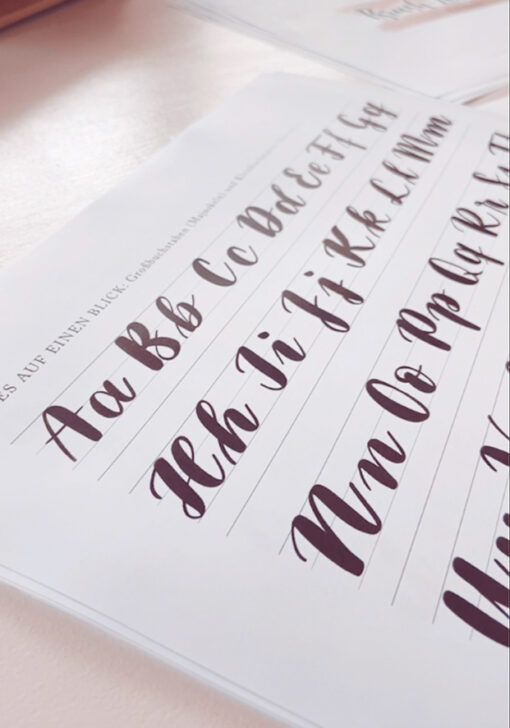 ES AUF EINEN BLICK: Großbuchstaben (Majuskeln) und
Aa Bb Cc Dd Ee Ff Gg
Hh Ii Jj Kk Ll Mm
Nn Oo Pp Qq Rr Ss